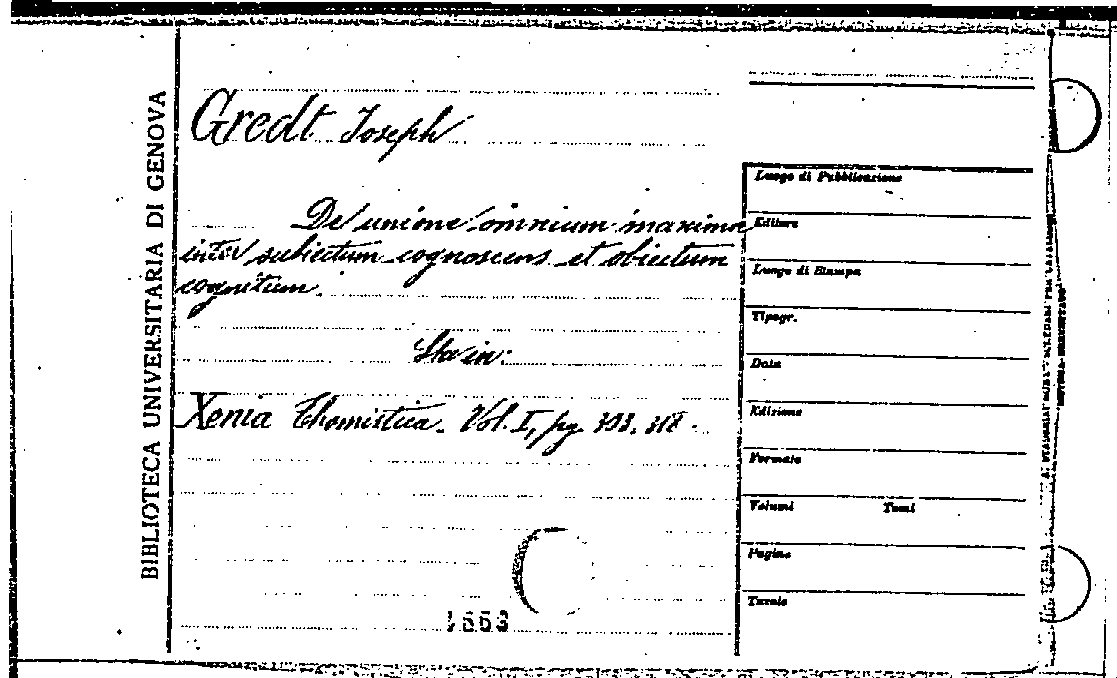 BIBLIOTECA UNIVERSITARIA DI GENOVA
Gredt Joseph
De unione omnium maxima
inter subiectum cognoscens et obiectum
cognitum.
Sta in:
Xenia Thomistica. Vol. I, pg. 303. 318.
Luogo di Pubblicazione
Editore
Luogo di Stampa
Tipogr.
Data
Edizione
Formato
Volumi Tomi
Pagine
Tavole